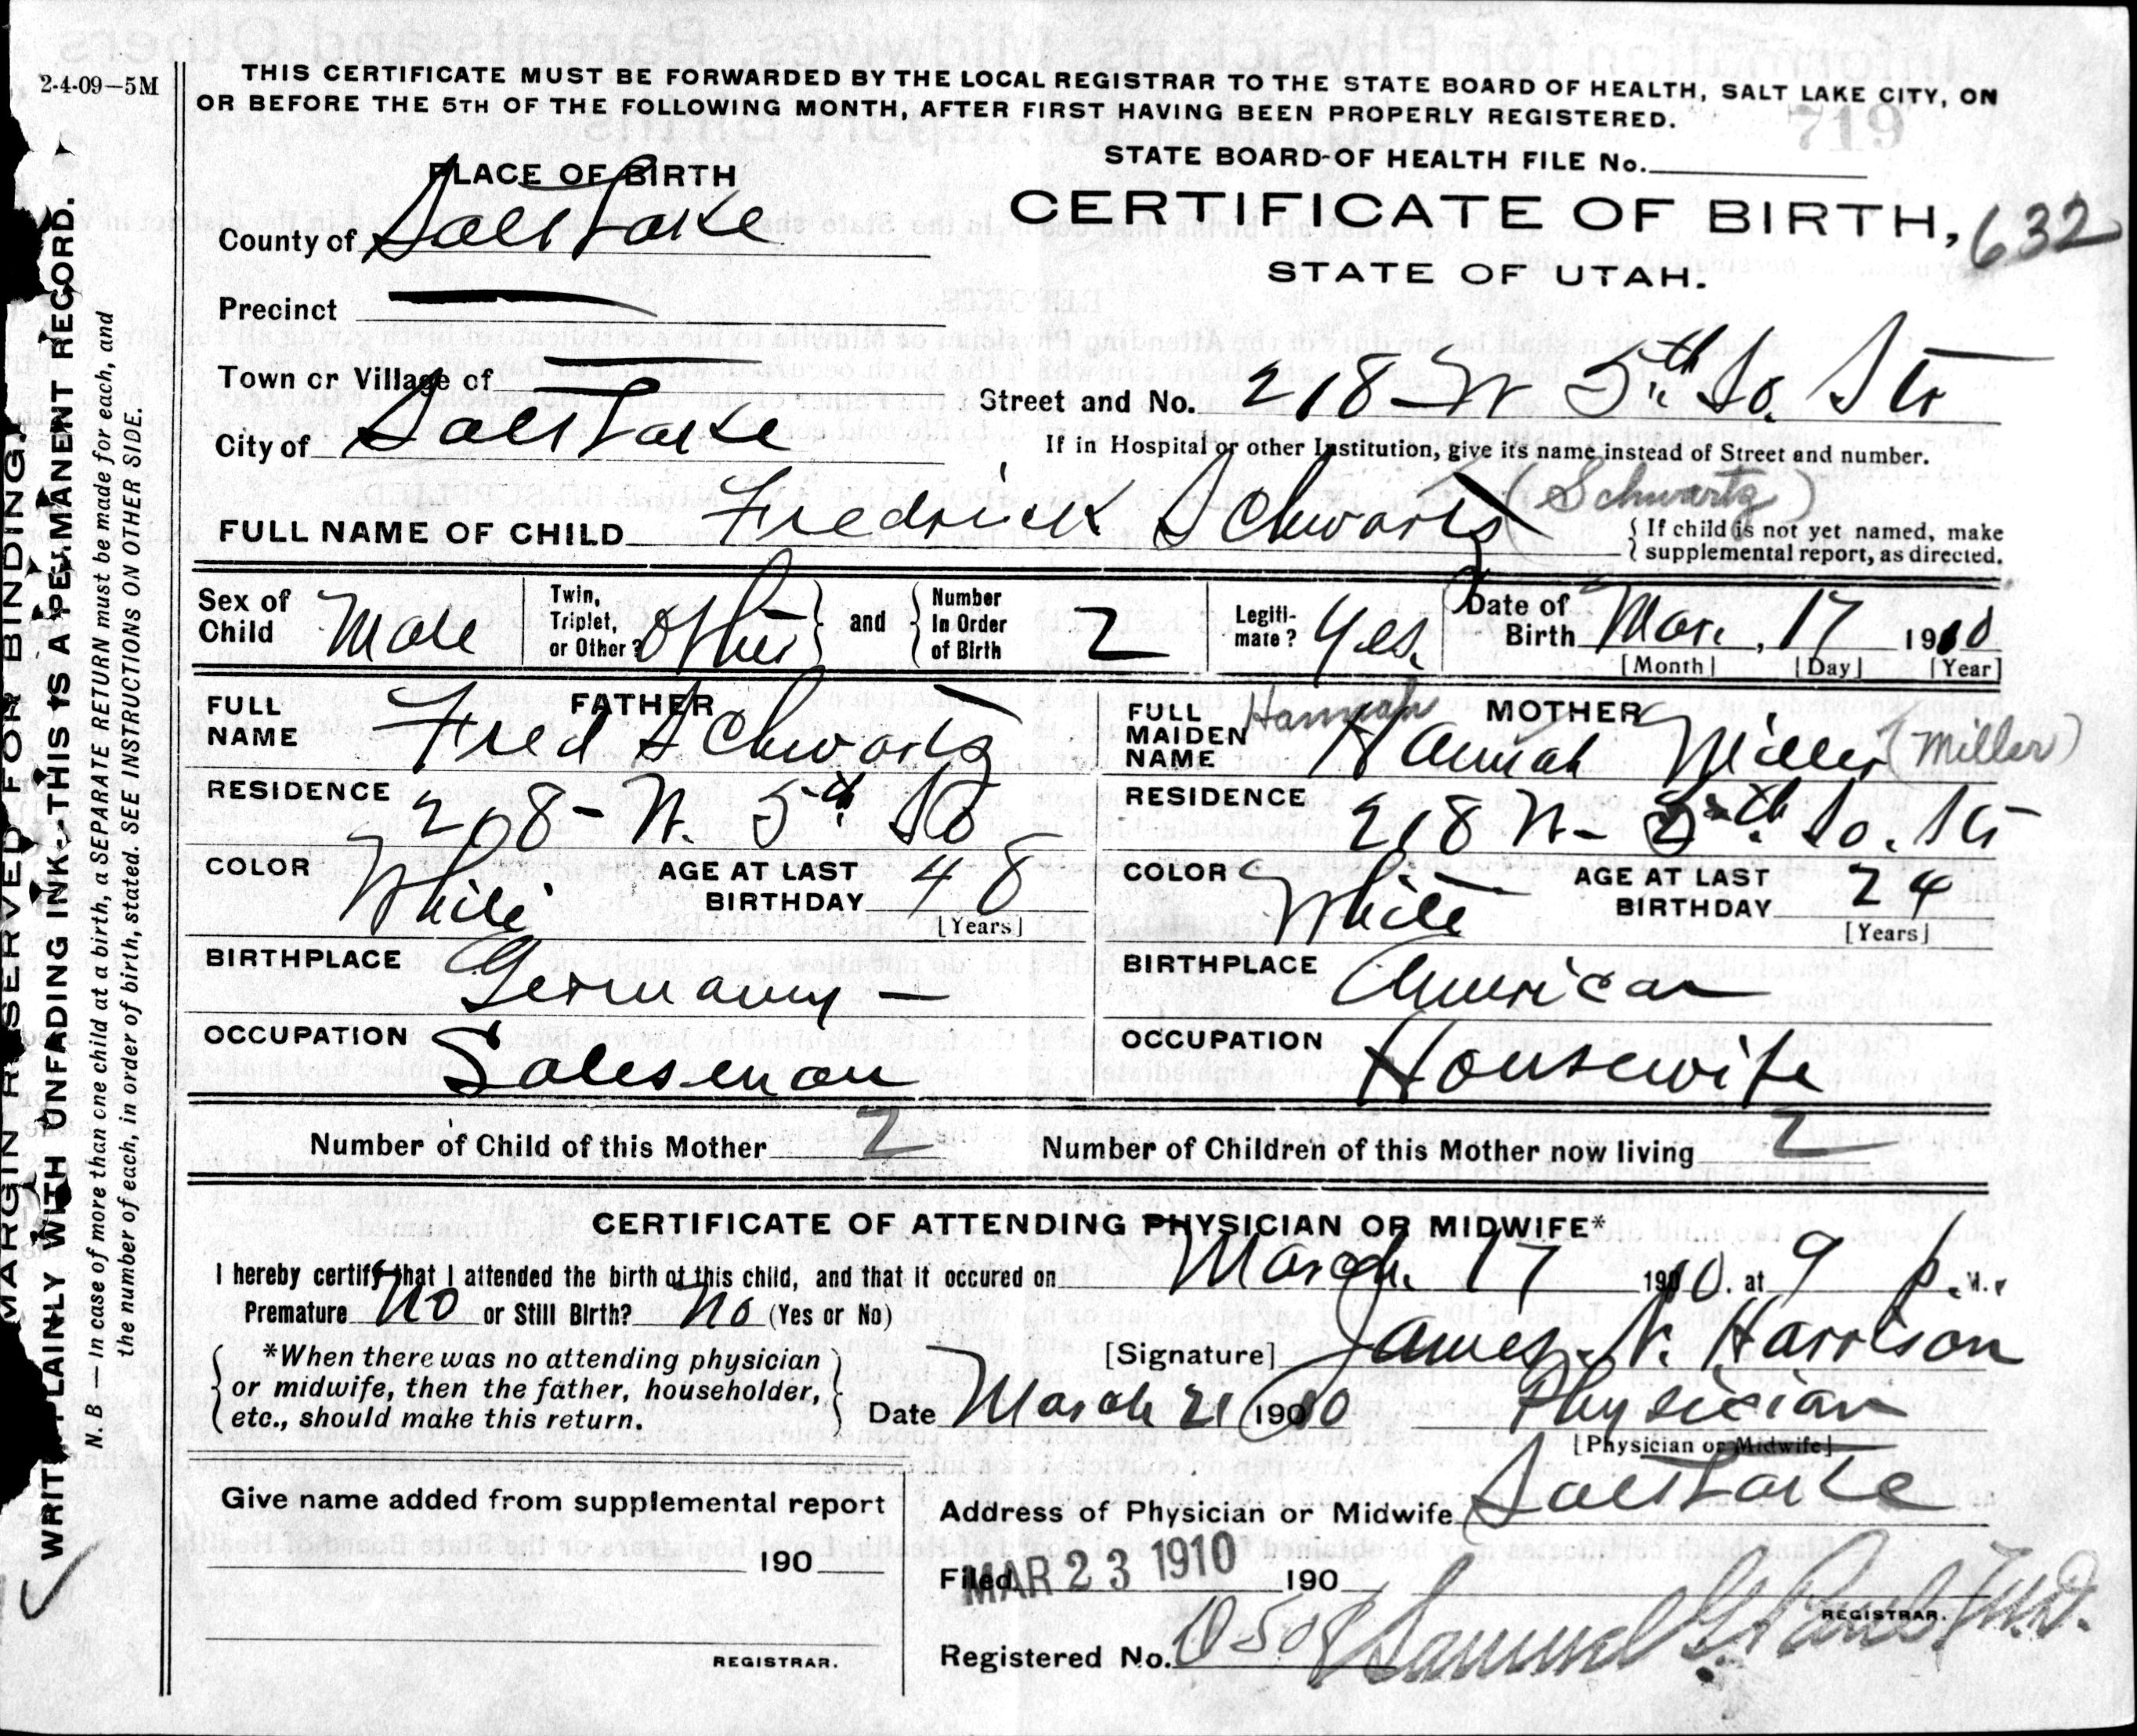 2-4-09—5M
THIS CERTIFICATE MUST BE FORWARDED BY THE LOCAL REGISTRAR TO THE STATE BOARD OF HEALTH, SALT LAKE CITY, ON
OR BEFORE THE 5TH OF THE FOLLOWING MONTH, AFTER FIRST HAVING BEEN PROPERLY REGISTERED.
719
STATE BOARD OF HEALTH FILE No.
PLACE OF BIRTH
CERTIFICATE OF BIRTH, 632
STATE OF UTAH.
County of Salt Lake
Precinct
Town or Village of
Street and No. 218 W 5th So. St
City of Salt Lake
If in Hospital or other Institution, give its name instead of Street and number.
FULL NAME OF CHILD Fredrick Schwartz (Schwartz)
{ If child is not yet named, make
{ supplemental report, as directed.
Sex of Child Male
Twin, Triplet, or Other? Other } and { Number In Order of Birth 2
Legitimate? Yes.
Date of Birth Mar. , 17 1910
[Month] [Day] [Year]
FATHER
FULL NAME Fred Schwartz
RESIDENCE 208 - W. 5th So
COLOR White
AGE AT LAST BIRTHDAY 48
[Years]
BIRTHPLACE Germany —
OCCUPATION Salesman
MOTHER
FULL MAIDEN NAME Hannah Hannah Miller (Miller)
RESIDENCE 218 W - 5th. So. St
COLOR White
AGE AT LAST BIRTHDAY 24
[Years]
BIRTHPLACE American
OCCUPATION Housewife
Number of Child of this Mother 2
Number of Children of this Mother now living 2
CERTIFICATE OF ATTENDING PHYSICIAN OR MIDWIFE*
I hereby certify that I attended the birth of this child, and that it occured on March 17 1910. at 9 p. M.,
Premature No or Still Birth? No (Yes or No)
[Signature] James N. Harrison
{ *When there was no attending physician }
{ or midwife, then the father, householder, }
{ etc., should make this return. }
Date March 21 1910
Physician
[Physician or Midwife]
Give name added from supplemental report
Address of Physician or Midwife Salt Lake
190
Filed MAR 23 1910 190
REGISTRAR.
Registered No. Samuel G. Paul M.D.
REGISTRAR.
MARGIN RESERVED FOR BINDING.
WRITE PLAINLY WITH UNFADING INK—THIS IS A PERMANENT RECORD.
N. B.—In case of more than one child at a birth, a SEPARATE RETURN must be made for each, and
the number of each, in order of birth, stated. SEE INSTRUCTIONS ON OTHER SIDE.